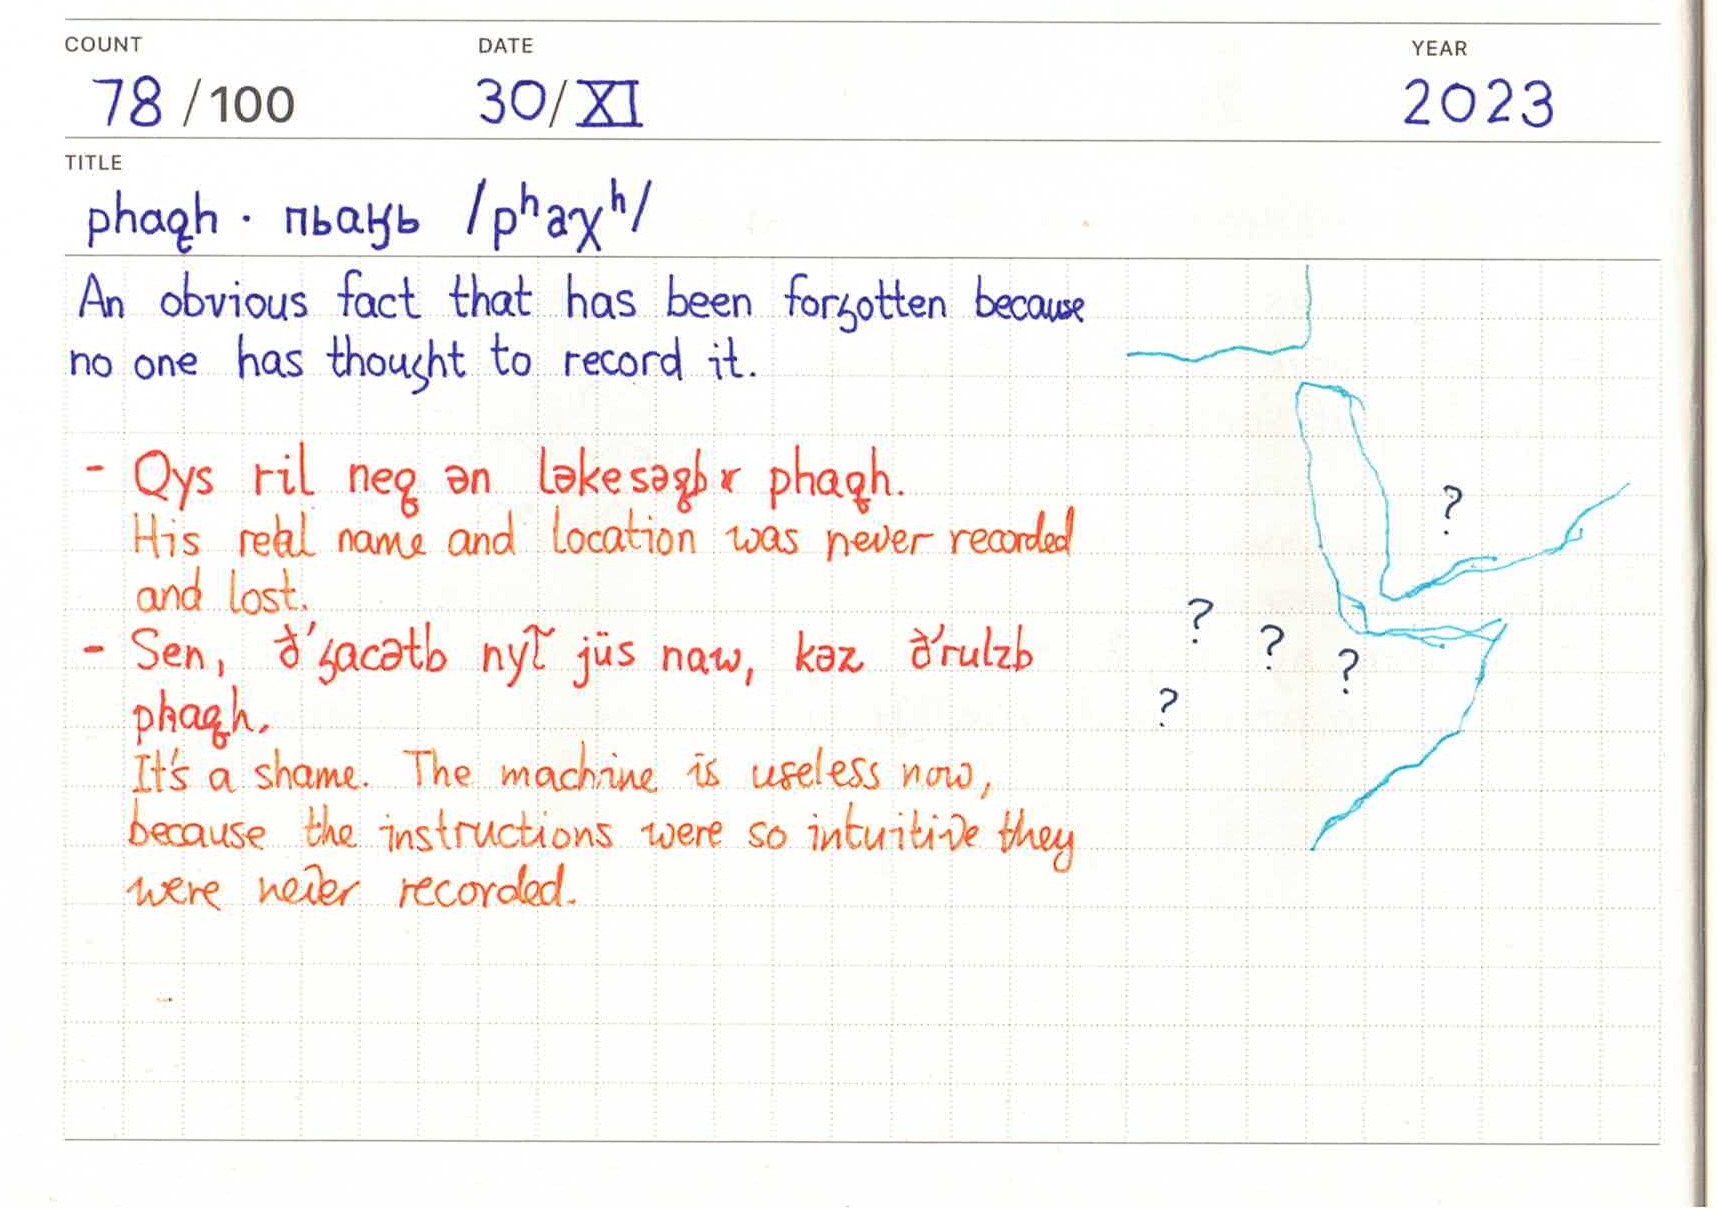 COUNT DATE YEAR
78 /100 30/XI 2023
TITLE
phaꝗh · пьаӄь /pʰaχʰ/
An obvious fact that has been forgotten because
no one has thought to record it.
- Qys ril neꝗ ən phaꝗh.
His real name and location was never recorded
and lost.
- Sen, jüs naw, kəz
phaꝗh.
It's a shame. The machine is useless now,
because the instructions were so intuitive they
were never recorded.
? ? ? ? ?